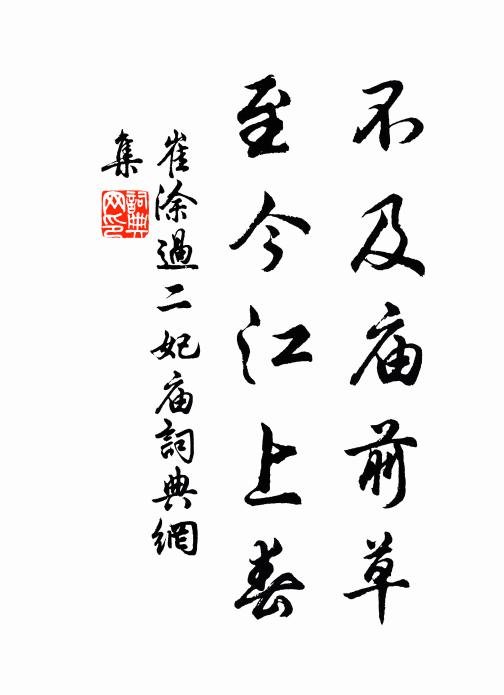 不及庙前草
至今江上春
崔涂過二妃庙詞典網
集
詞典網印